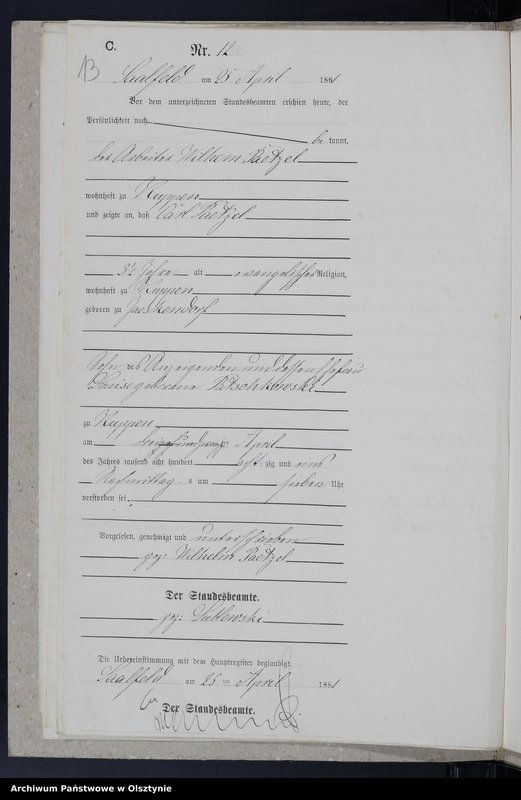 C.
Nr. 12
13
Saalfeld am 25 April 1881
Vor dem unterzeichneten Standesbeamten erschien heute, der
Persönlichkeit nach
be kannt,
der Arbeiter Wilhelm Paetzel
wohnhaft zu Kuppen
und zeigte an, daß Carl Paetzel
3½ Jahre alt evangelischer Religion,
wohnhaft zu Kuppen
geboren zu Jaeskendorf
Sohn des Anzeigenden und dessen Ehefrau
Louise geborene
zu Kuppen
am April
des Jahres tausend acht hundert acht zig und eins
Nachmittag s um sieben Uhr
verstorben sei.
Vorgelesen, genehmigt und unterschrieben
gez: Wilhelm Paetzel
Der Standesbeamte.
gez:
Die Uebereinstimmung mit dem Hauptregister beglaubigt.
Saalfeld am 25 ten April 1881
Der Standesbeamte.
Archiwum Państwowe w Olsztynie